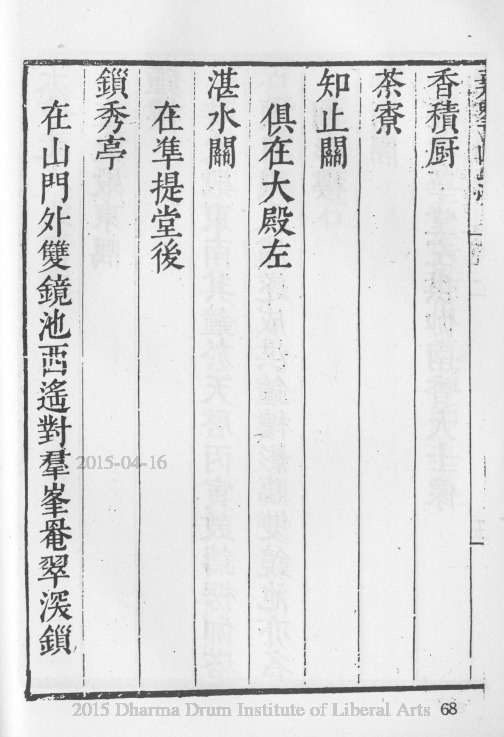 香積厨
茶寮
知止關
俱在大殿左
湛水關
在凖提堂後
鎖秀亭
在山門外雙鏡池西遙對羣峯罨翠深鎖
2015-04-16
2015 Dharma Drum Institute of Liberal Arts
68